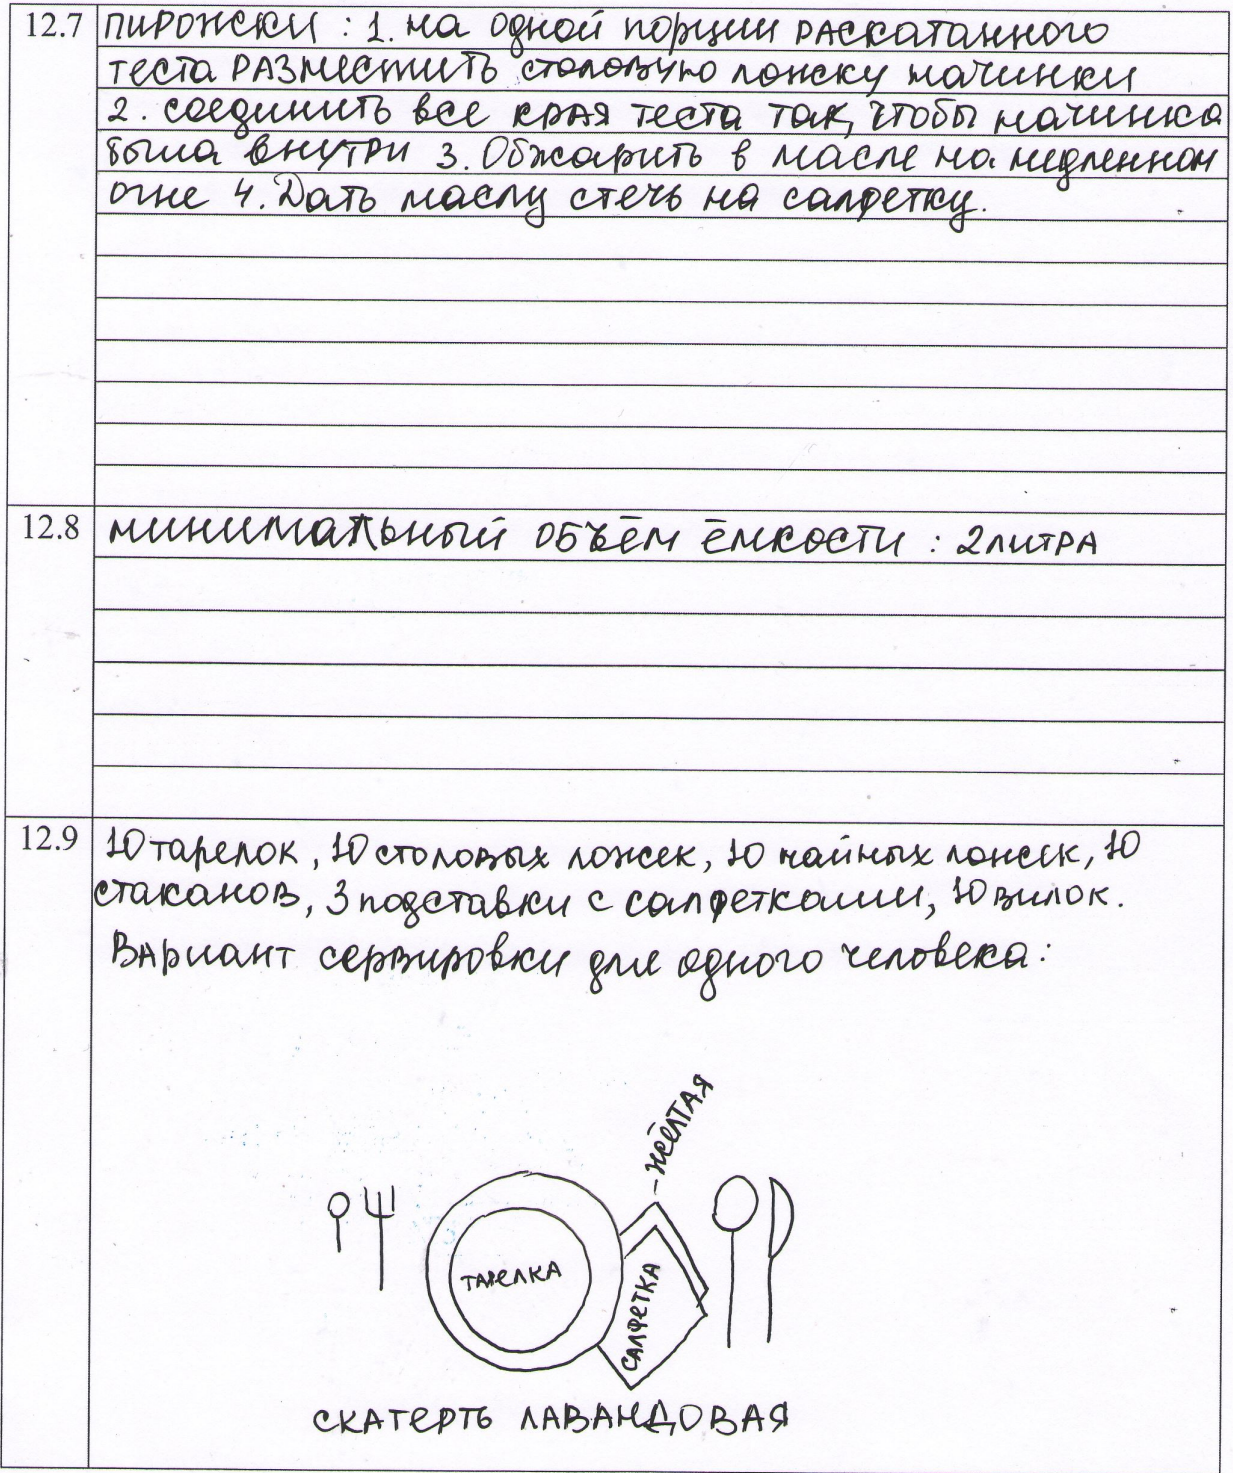 12.7 ПИРОЖКИ : 1. на одной порции РАСКАТАННОГО
теста РАЗМЕСТИТЬ столовую ложку начинки
2. соединить все края теста так, чтобы начинка
была внутри 3. Обжарить в масле на медленном
огне 4. Дать маслу стечь на салфетку.
12.8 минимальный объём ёмкости : 2 литра
12.9 10 тарелок, 10 столовых ложек, 10 чайных ложек, 10
стаканов, 3 подставки с салфетками, 10 вилок.
Вариант сервировки для одного человека:
- жёлтая
ТАРЕЛКА
САЛФЕТКА
СКАТЕРТЬ ЛАВАНДОВАЯ